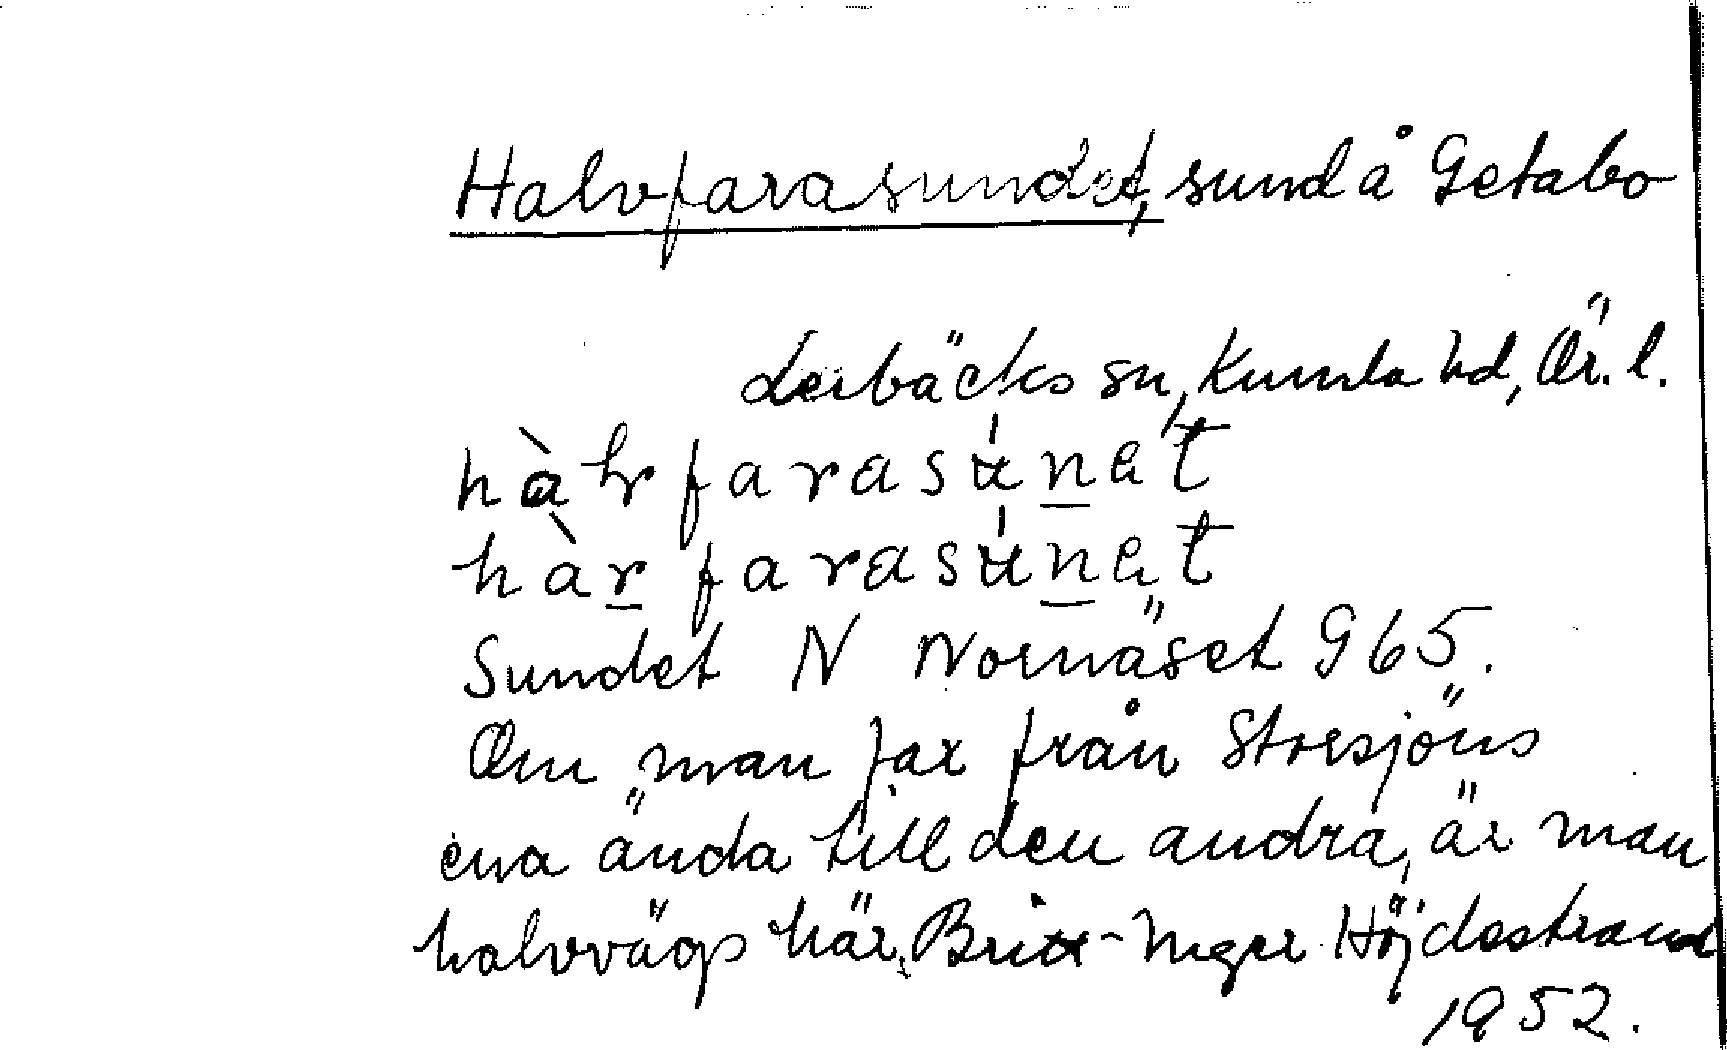 Halvfarasundet, sund å Getabo
Lerbäcks sn, Kumla hd, Ör. l.
hàlvfarasu̇́n̲et
hàr̲farasu̇́n̲et
Sundet N Nornäset 965.
Om man far från Storsjöns
ena ända till den andra, är man
halvvägs här. Britt-Inger Höjdestrand
1952.